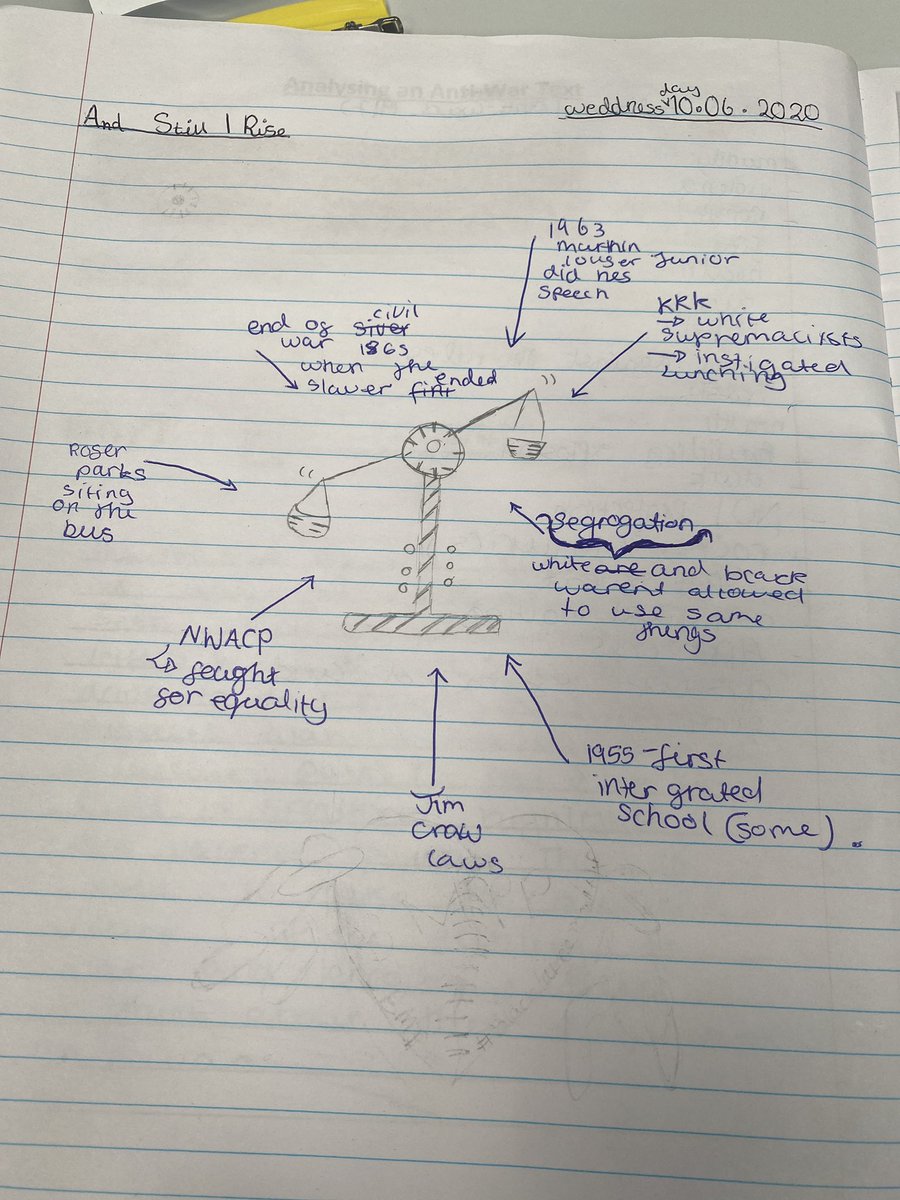 Analysing an Anti-War Text
And Still I Rise
weddness day 10.06.2020
1963
marthin
louser Junior
did hes
speech
KKK
→ white
supremacists
→ instigated
Lunching
end of siver civil
war 1865
when the
slaver fint ended
Roser
parks
siting
on the
bus
segrogation
white are and black
warent allowed
to use same
things
NWACP
↳ fought
for equality
Jim
Crow
Laws
1955 - first
inter grated
school (some).